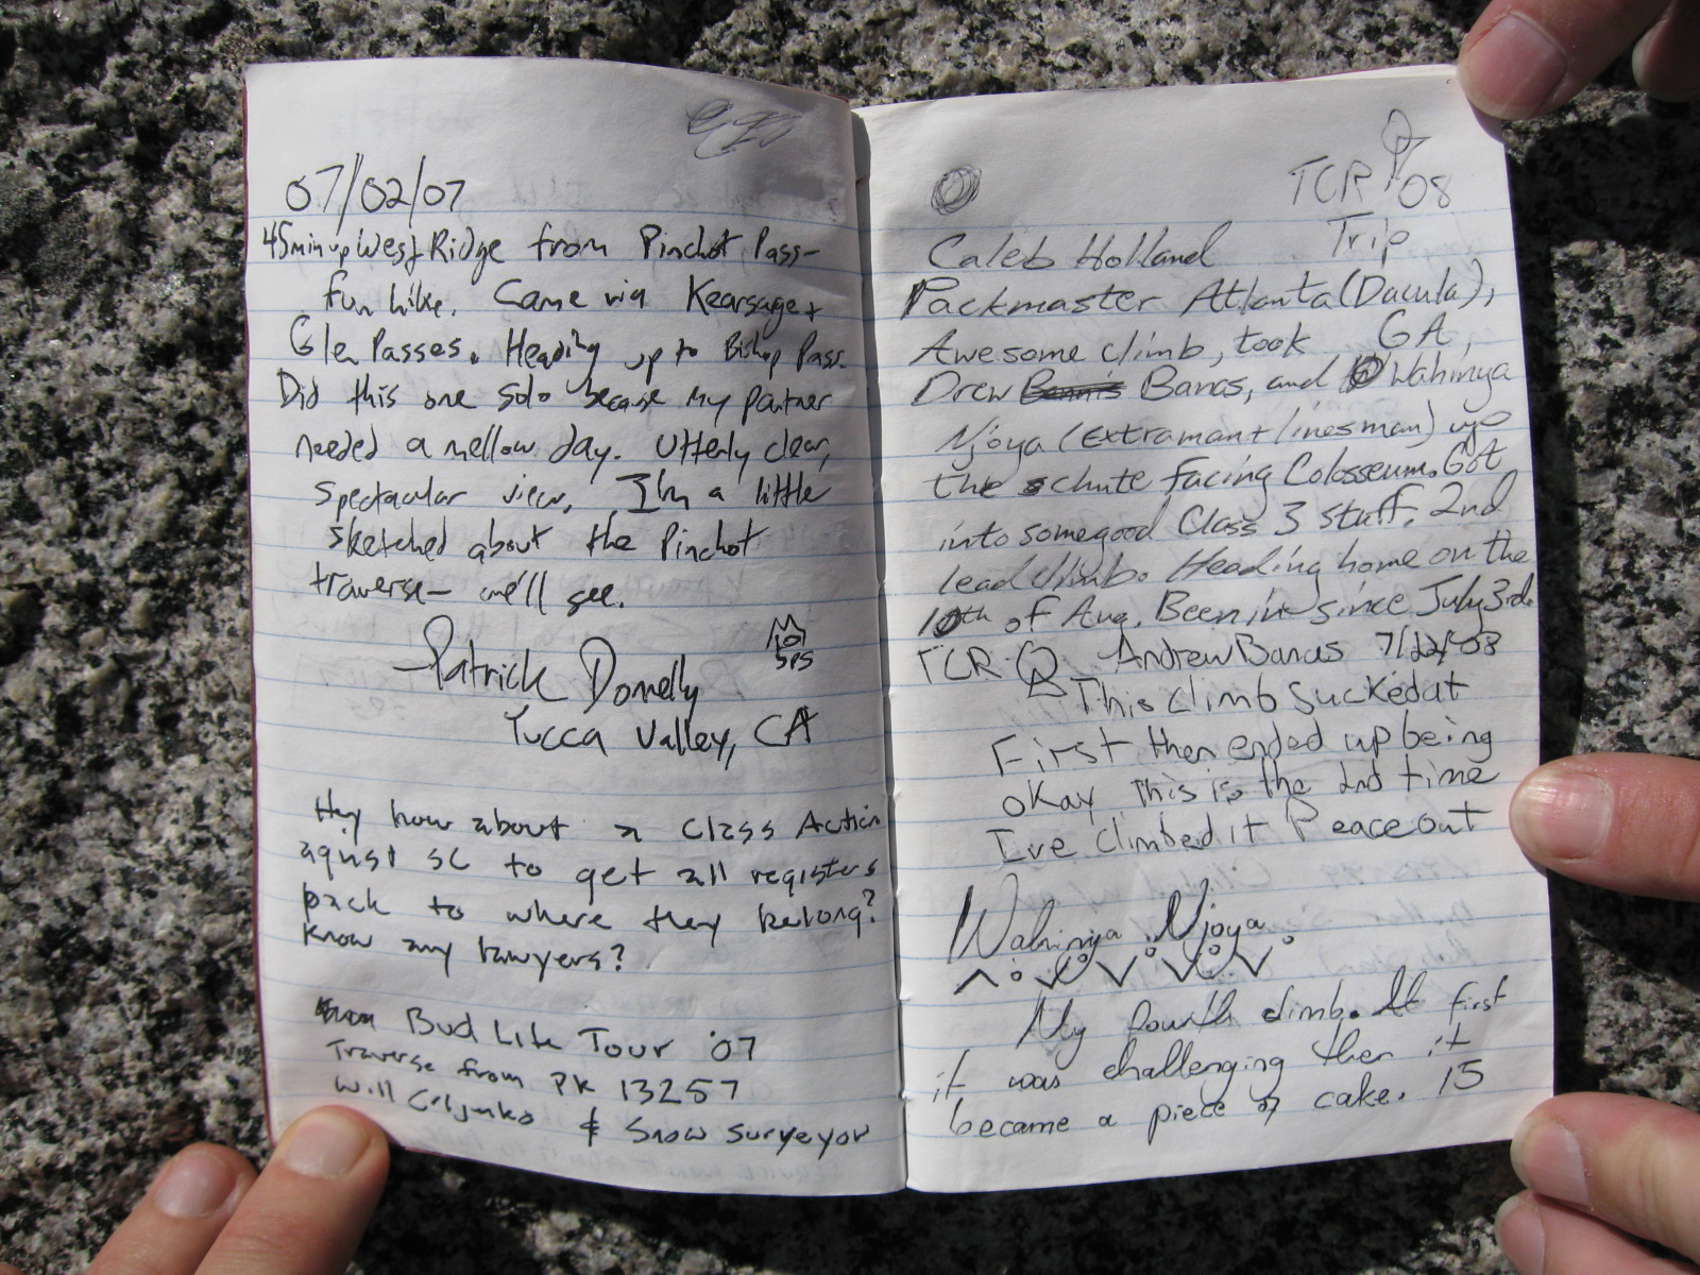 07/02/07
45min up West Ridge from Pinchot Pass-
fun hike. Came via Kearsage +
Glen Passes. Heading up to Bishop Pass.
Did this one solo because my partner
needed a mellow day. Utterly clear,
spectacular view, I'm a little
sketched about the Pinchot
traverse- we'll see.
SPS
Patrick Donnelly
Yucca Valley, CA
Hey how about a Class Action
aginst SC to get all registers
back to where they belong?
Know any lawyers?
Bud Lite Tour '07
Traverse from PK 13257
Will & Snow Surveyor
TCR 08
Trip
Caleb Holland
Packmaster Atlanta (Dacula),
GA,
Awesome climb, took
Drew Banas, and Wahinya
Njoya (Extraman + linesman) up
the schute facing Colosseum. Got
into somegood Class 3 stuff. 2nd
lead climb. Heading home on the
10th of Aug. Been in since July 3rd.
TCR Andrew Banas 7/22/08
This climb sucked at
First then ended up being
okay This is the 2nd time
Ive climbed it Peace out
Wahinya Njoya
My fourth climb. At first
it was challenging then it
became a piece of cake. 15